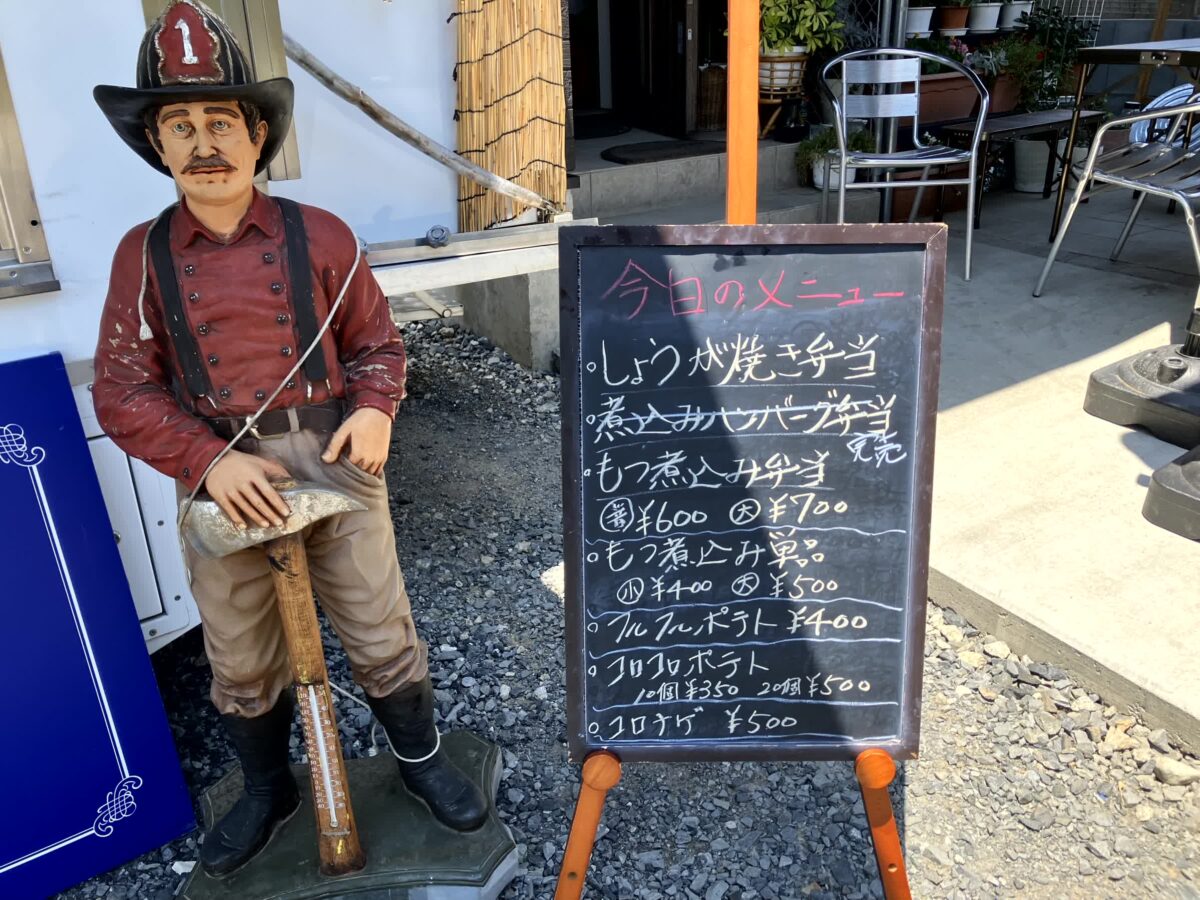 1
今日のメニュー
。しょうが焼き弁当
。煮込みハンバーグ弁当
完売
。もつ煮込み弁当
普 ¥600 大 ¥700
。もつ煮込み単品
小 ¥400 大 ¥500
。フルフルポテト ¥400
。コロコロポテト
10個¥350 20個¥500
。コロナゲ ¥500